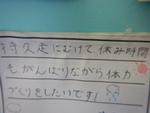 持久走にむけて休み時間
もがんばりながら体力
づくりをしたいです!